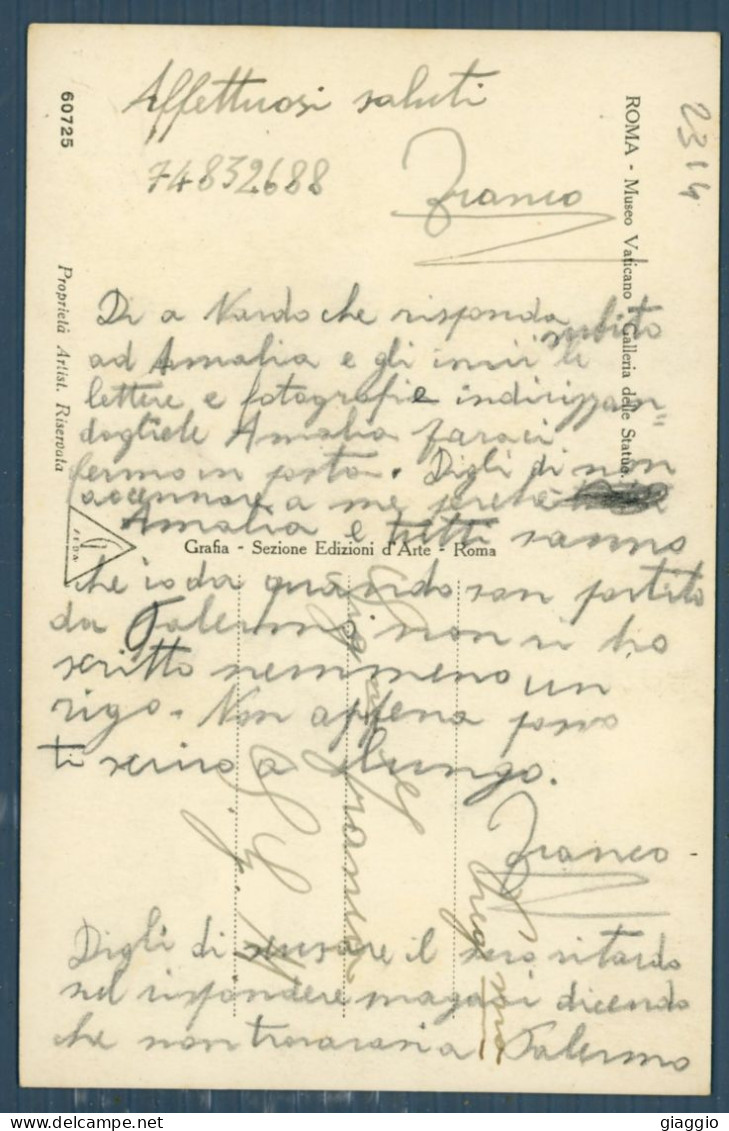 Affettuosi saluti
74832688
Franco
2314
60725
Proprietà Artist. Riservata
ROMA - Museo Vaticano - Galleria delle Statue.
Di a Nardo che risponda subito
ad Amalia e gli invii le
lettere e fotografie indirizzan=
dogliele Amalia Faraci
fermo in posta. Digli di non
accennare a me perchè
Amalia e tutti sanno
Grafia - Sezione Edizioni d'Arte - Roma
che io da quando son partito
da Palermo non vi ho
scritto nemmeno un
rigo. Non appena posso
ti scrivo a lungo.
Franco
Digli di scusare il suo ritardo
nel rispondere magari dicendo
che non trovavasi a Palermo